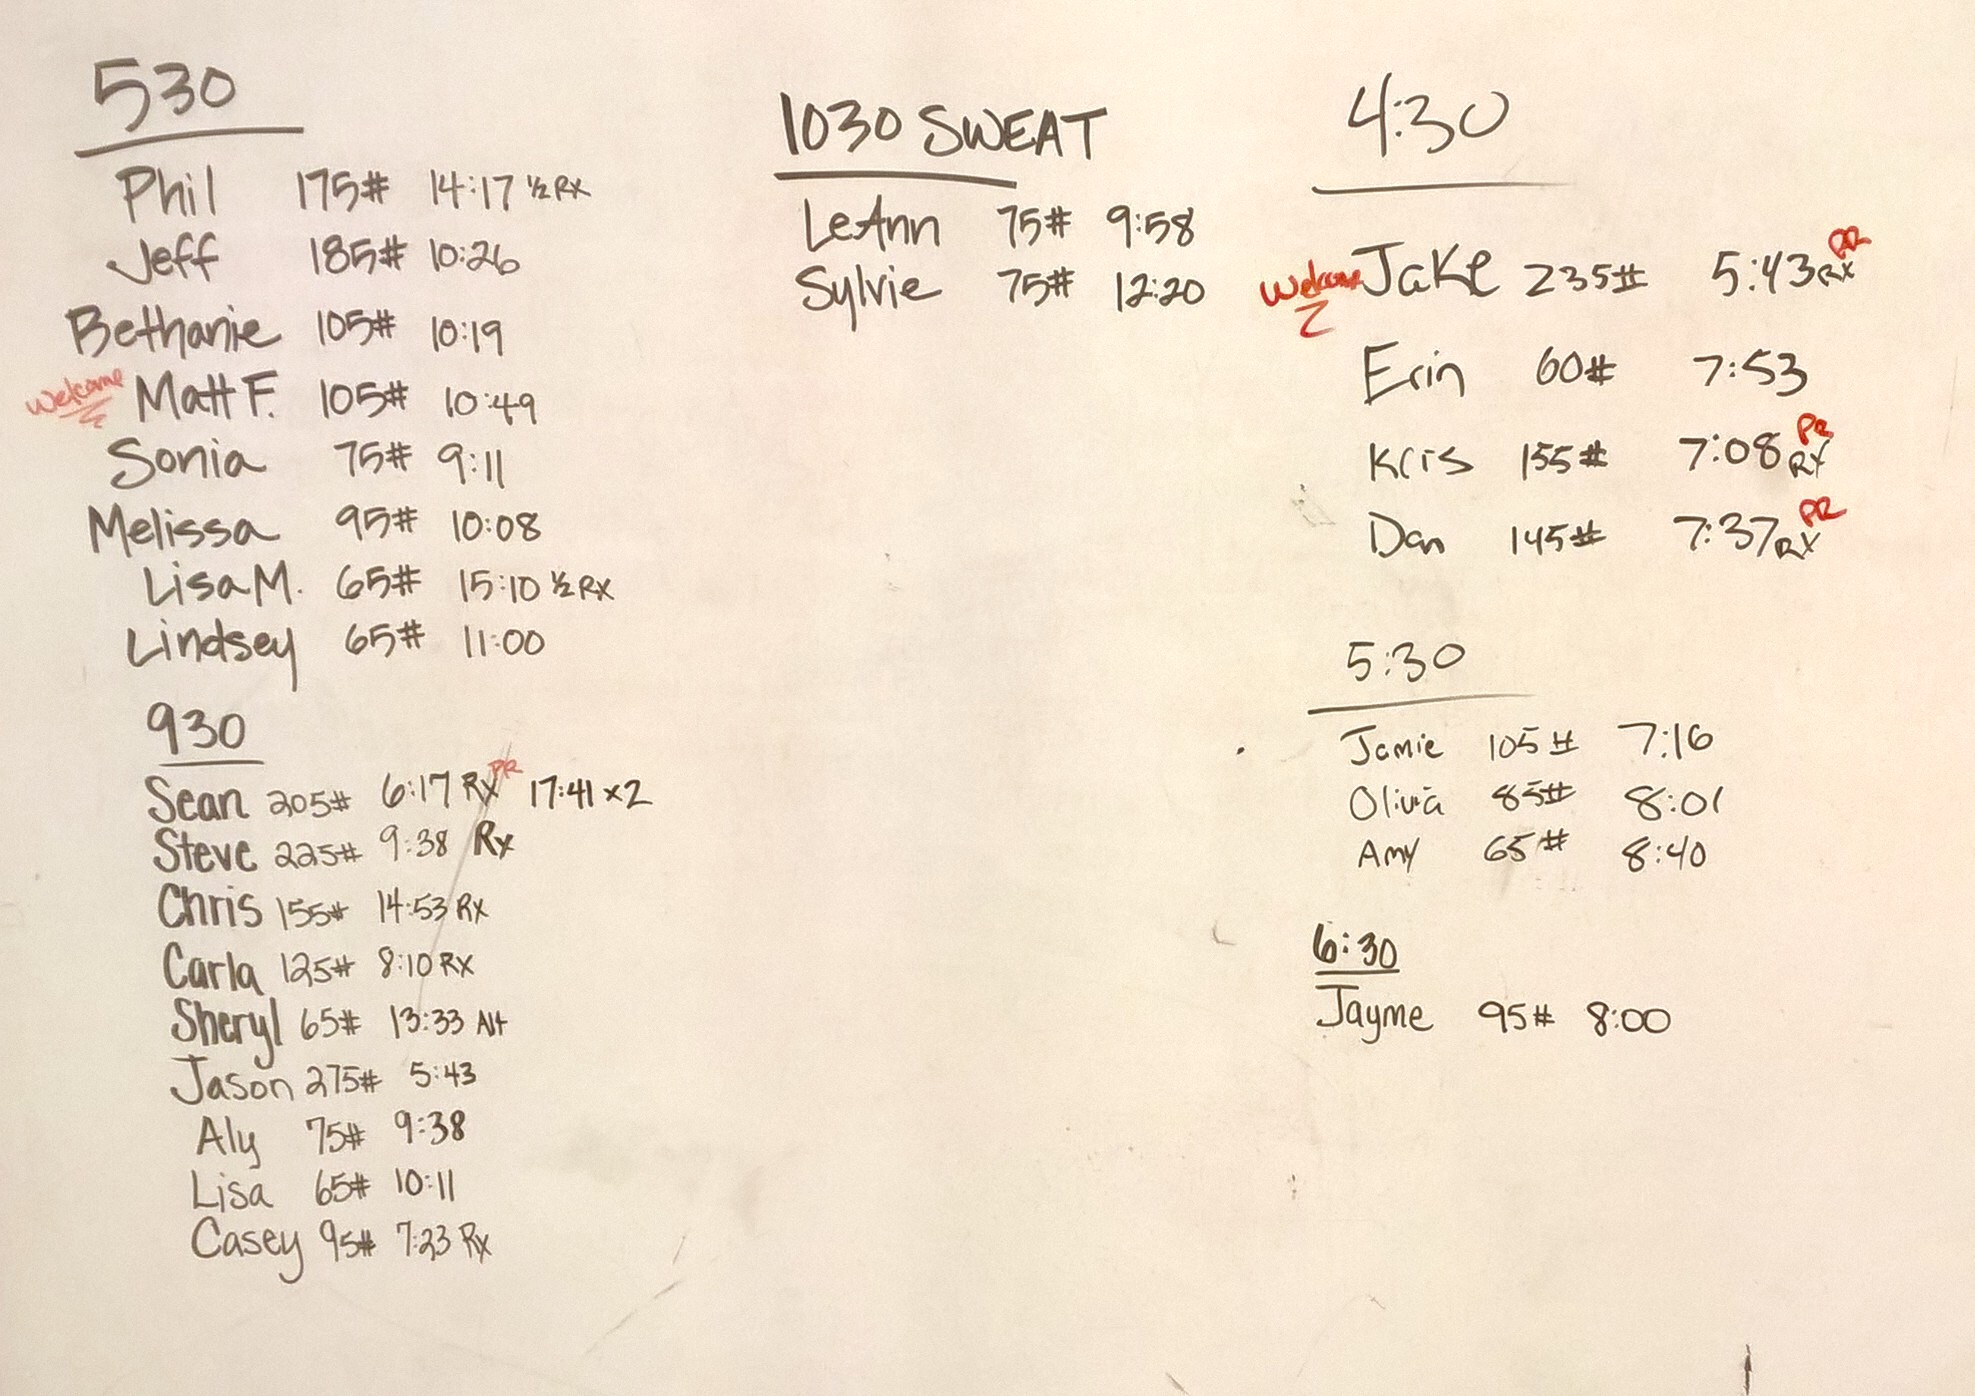 530
Phil 175# 14:17 ½ Rx
Jeff 185# 10:26
Bethanie 105# 10:19
welcome Matt F. 105# 10:49
Sonia 75# 9:11
Melissa 95# 10:08
Lisa M. 65# 15:10 ½ Rx
Lindsey 65# 11:00
930
Sean 205# 6:17 Rx PR 17:41 x2
Steve 225# 9:38 Rx
Chris 155# 14:53 Rx
Carla 125# 8:10 Rx
Sheryl 65# 13:33 Alt
Jason 275# 5:43
Aly 75# 9:38
Lisa 65# 10:11
Casey 95# 7:23 Rx
1030 SWEAT
LeAnn 75# 9:58
Sylvie 75# 12:20
4:30
Welcome Jake 235# 5:43 Rx PR
Erin 60# 7:53
Kris 155# 7:08 RX PR
Dan 145# 7:37 RX PR
5:30
Jamie 105# 7:16
Olivia 85# 8:01
Amy 65# 8:40
6:30
Jayme 95# 8:00